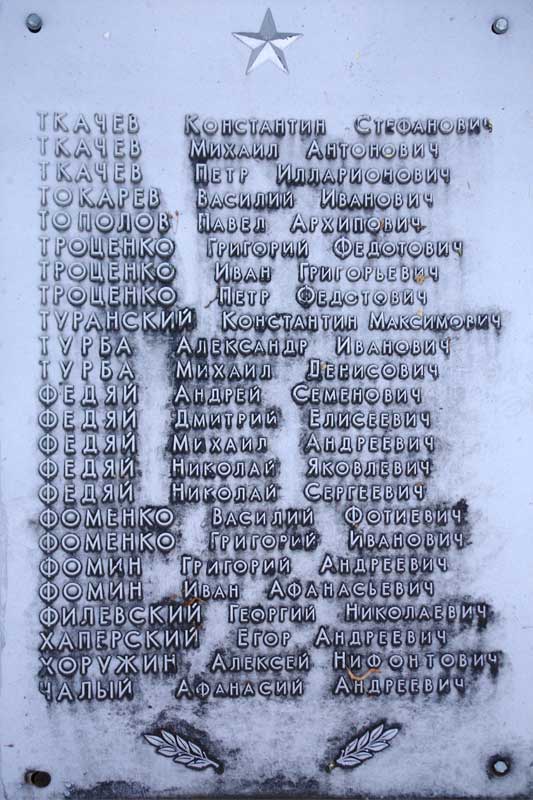 ТКАЧЕВ КОНСТАНТИН СТЕФАНОВИЧ
ТКАЧЕВ МИХАИЛ АНТОНОВИЧ
ТКАЧЕВ ПЕТР ИЛЛАРИОНОВИЧ
ТОКАРЕВ ВАСИЛИЙ ИВАНОВИЧ
ТОПОЛОВ ПАВЕЛ АРХИПОВИЧ
ТРОЦЕНКО ГРИГОРИЙ ФЕДОТОВИЧ
ТРОЦЕНКО ИВАН ГРИГОРЬЕВИЧ
ТРОЦЕНКО ПЕТР ФЕДОТОВИЧ
ТУРАНСКИЙ КОНСТАНТИН МАКСИМОВИЧ
ТУРБА АЛЕКСАНДР ИВАНОВИЧ
ТУРБА МИХАИЛ ДЕНИСОВИЧ
ФЕДЯЙ АНДРЕЙ СЕМЕНОВИЧ
ФЕДЯЙ ДМИТРИЙ ЕЛИСЕЕВИЧ
ФЕДЯЙ МИХАИЛ АНДРЕЕВИЧ
ФЕДЯЙ НИКОЛАЙ ЯКОВЛЕВИЧ
ФЕДЯЙ НИКОЛАЙ СЕРГЕЕВИЧ
ФОМЕНКО ВАСИЛИЙ ФОТИЕВИЧ
ФОМЕНКО ГРИГОРИЙ ИВАНОВИЧ
ФОМИН ГРИГОРИЙ АНДРЕЕВИЧ
ФОМИН ИВАН АФАНАСЬЕВИЧ
ФИЛЕВСКИЙ ГЕОРГИЙ НИКОЛАЕВИЧ
ХАПЕРСКИЙ ЕГОР АНДРЕЕВИЧ
ХОРУЖИН АЛЕКСЕЙ НИФОНТОВИЧ
ЧАЛЫЙ АФАНАСИЙ АНДРЕЕВИЧ